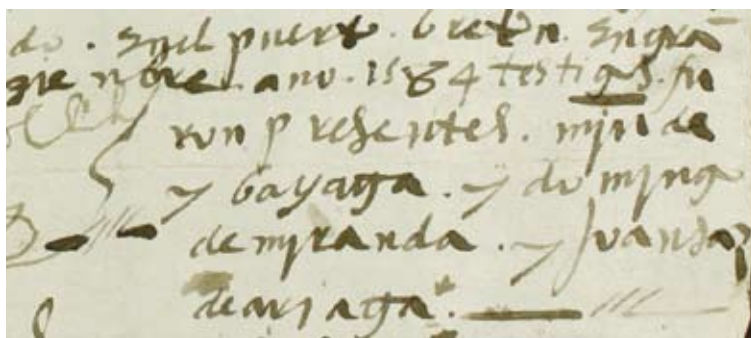 do . en el puerto . breton . en gra
zienbre . ano . 1584 testigos . fu
ron presentes . mjn de
y bayaga . y domjngo
de mjranda . y Juan Saz
de arjaga .